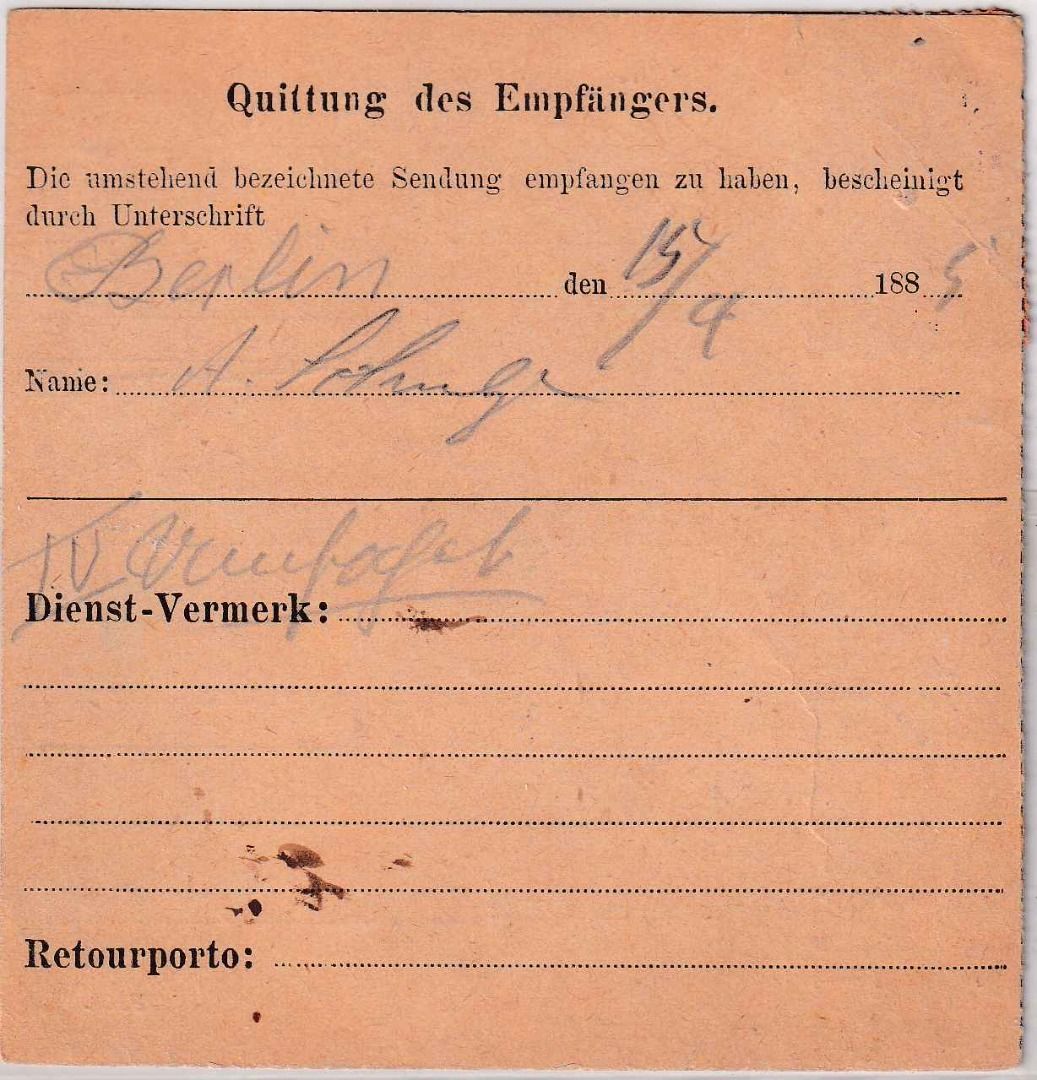 Quittung des Empfängers.
Die umstehend bezeichnete Sendung empfangen zu haben, bescheinigt
durch Unterschrift
Berlin den 15/4 1885
Name: A.
Dienst-Vermerk:
Retourporto: